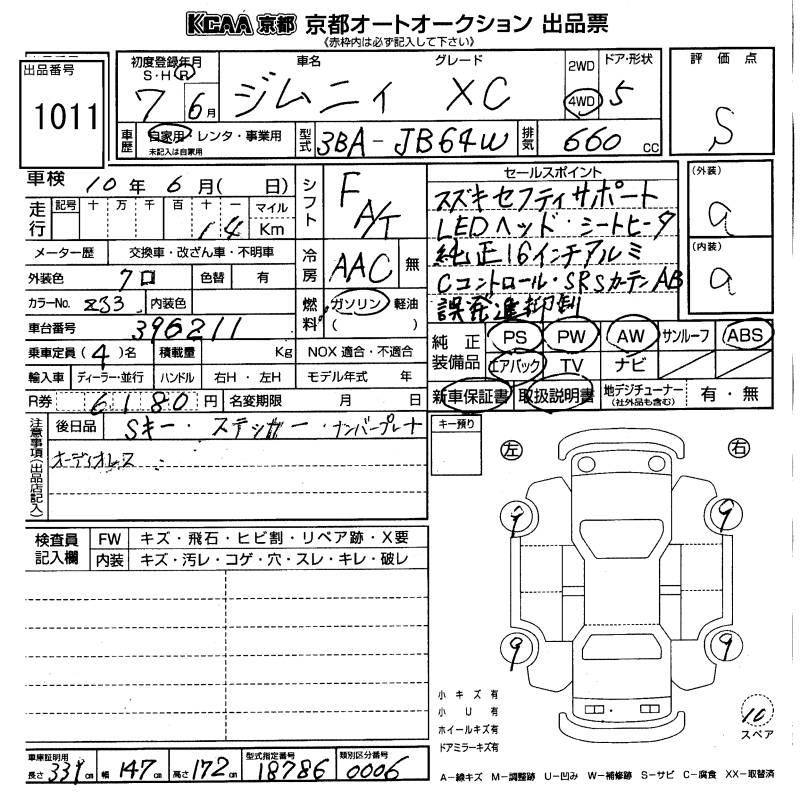 KCAA 京都 京都オートオークション 出品票
《赤枠内は必ず記入して下さい》
出品番号
1011
初度登録年月
S・H・R
7 6月
車名
ジムニィ
グレード
XC
2WD
4WD
ドア・形状
5
評価点
S
車歴
自家用・レンタ・事業用
未記入は自家用
型式
3BA-JB64W
排気
660 CC
車検 10年 6月( 日)
走行
記号 十 万 千 百 十 一 マイル
14 Km
メーター歴 交換車・改ざん車・不明車
外装色 クロ 色替 有
カラーNo. ZJ3 内装色
車台番号 396211
乗車定員 (4)名 積載量 Kg
輸入車 ディーラー・並行 ハンドル 右H・左H
R券 6180 円 名変期限 月 日
シフト F A/T
冷房 AAC 無
燃料 ガソリン 軽油
( )
NOX 適合・不適合
モデル年式 年
セールスポイント
スズキセフティサポート
LEDヘッド・シートヒータ
純正16インチアルミ
Cコントロール・SRSカーテンAB
誤発進抑制
(外装)
a
(内装)
a
純正装備品
PS PW AW サンルーフ ABS
エアバック TV ナビ
新車保証書 取扱説明書 地デジチューナー 有・無
(社外品も含む)
注意事項(出品店記入)
後日品 Sキー・ステッカー・ナンバープレート
オーディオレス
キー預り
左 右
9 9
9 9
10
スペア
検査員記入欄
FW キズ・飛石・ヒビ割・リペア跡・X要
内装 キズ・汚レ・コゲ・穴・スレ・キレ・破レ
小キズ有
小U有
ホイールキズ有
ドアミラーキズ有
車庫証明用
長さ 339cm 幅 147cm 高さ 172cm
型式指定番号 18786
類別区分番号 0006
A-線キズ M-調整跡 U-凹み W-補修跡 S-サビ C-腐食 XX-取替済